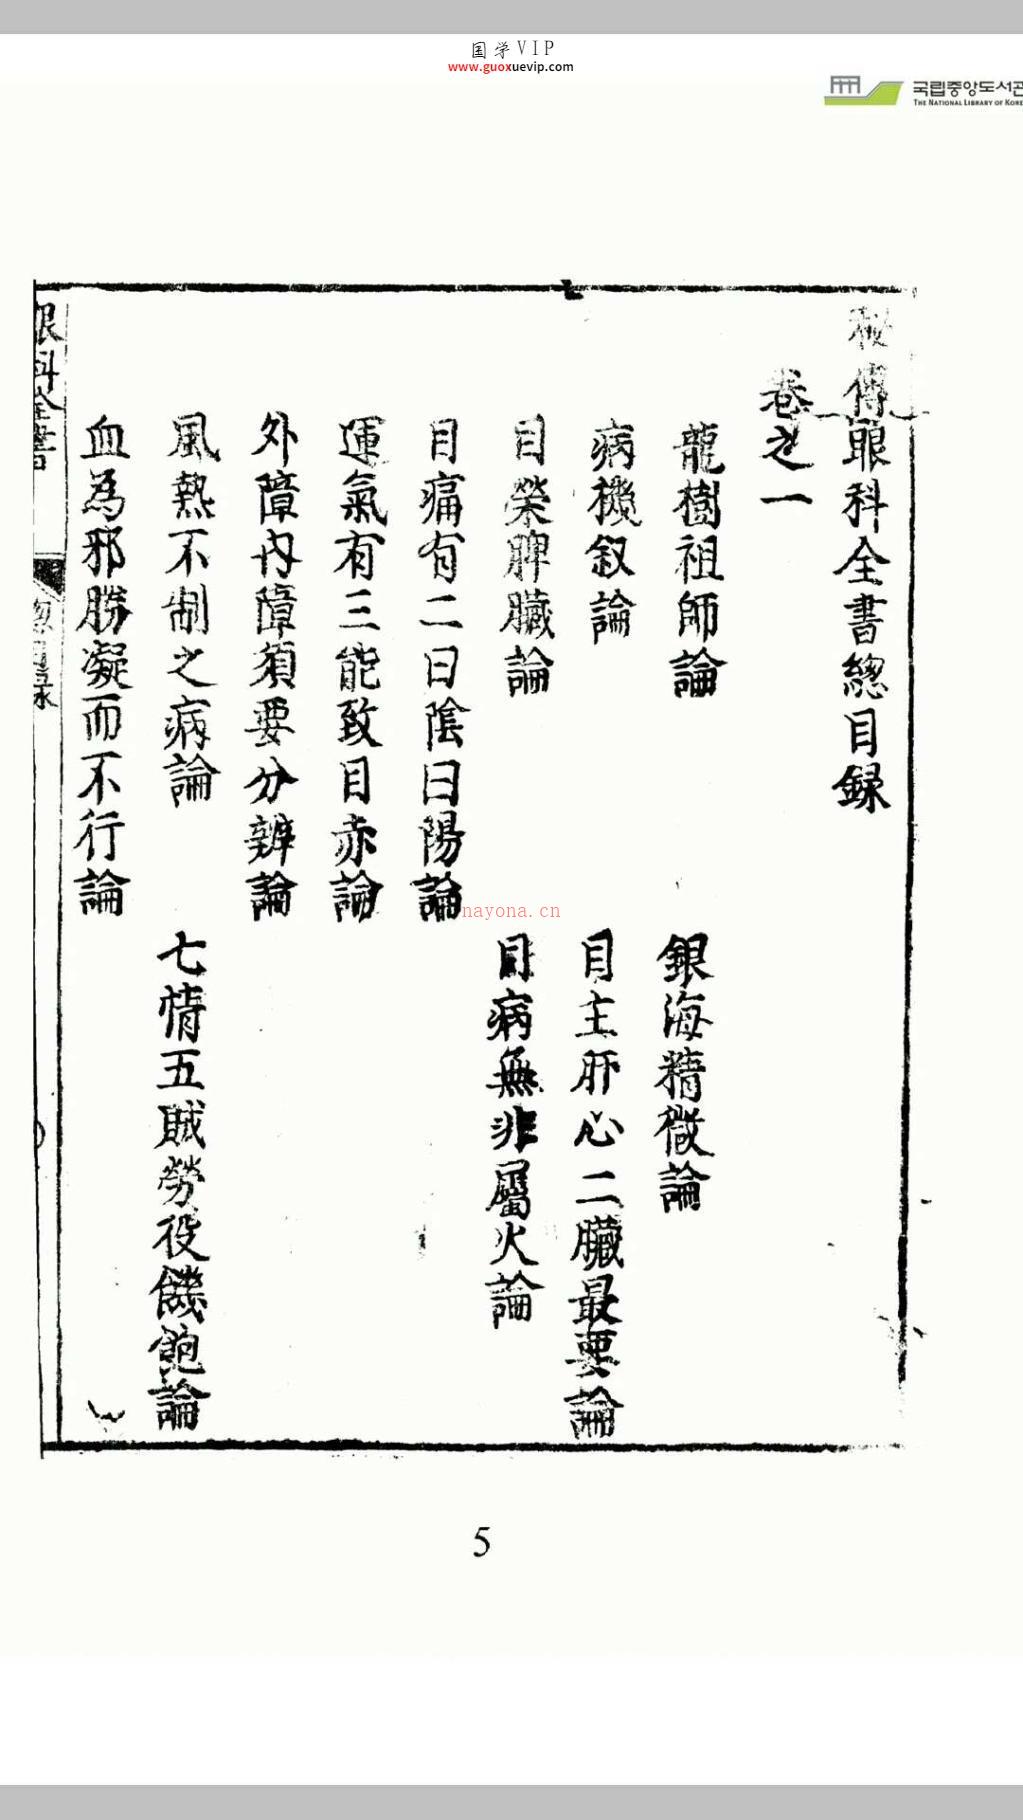 国学VIP
www.guoxuevip.com
국립중앙도서관
THE NATIONAL LIBRARY OF KORE
秘傳眼科全書總目錄
卷之一
龍樹祖師論
銀海精微論
病機叙論
目主肝心二臟最要論
目榮脾臟論
目病無非屬火論
目痛有二曰陰曰陽論
運氣有三能致目赤論
外障內障須要分辨論
風熱不制之病論
七情五賊勞役饑飽論
血為邪勝凝而不行論
眼科全書
總目錄
nayona.cn
5